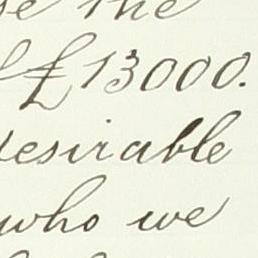 the
£13000.
desirable
who we